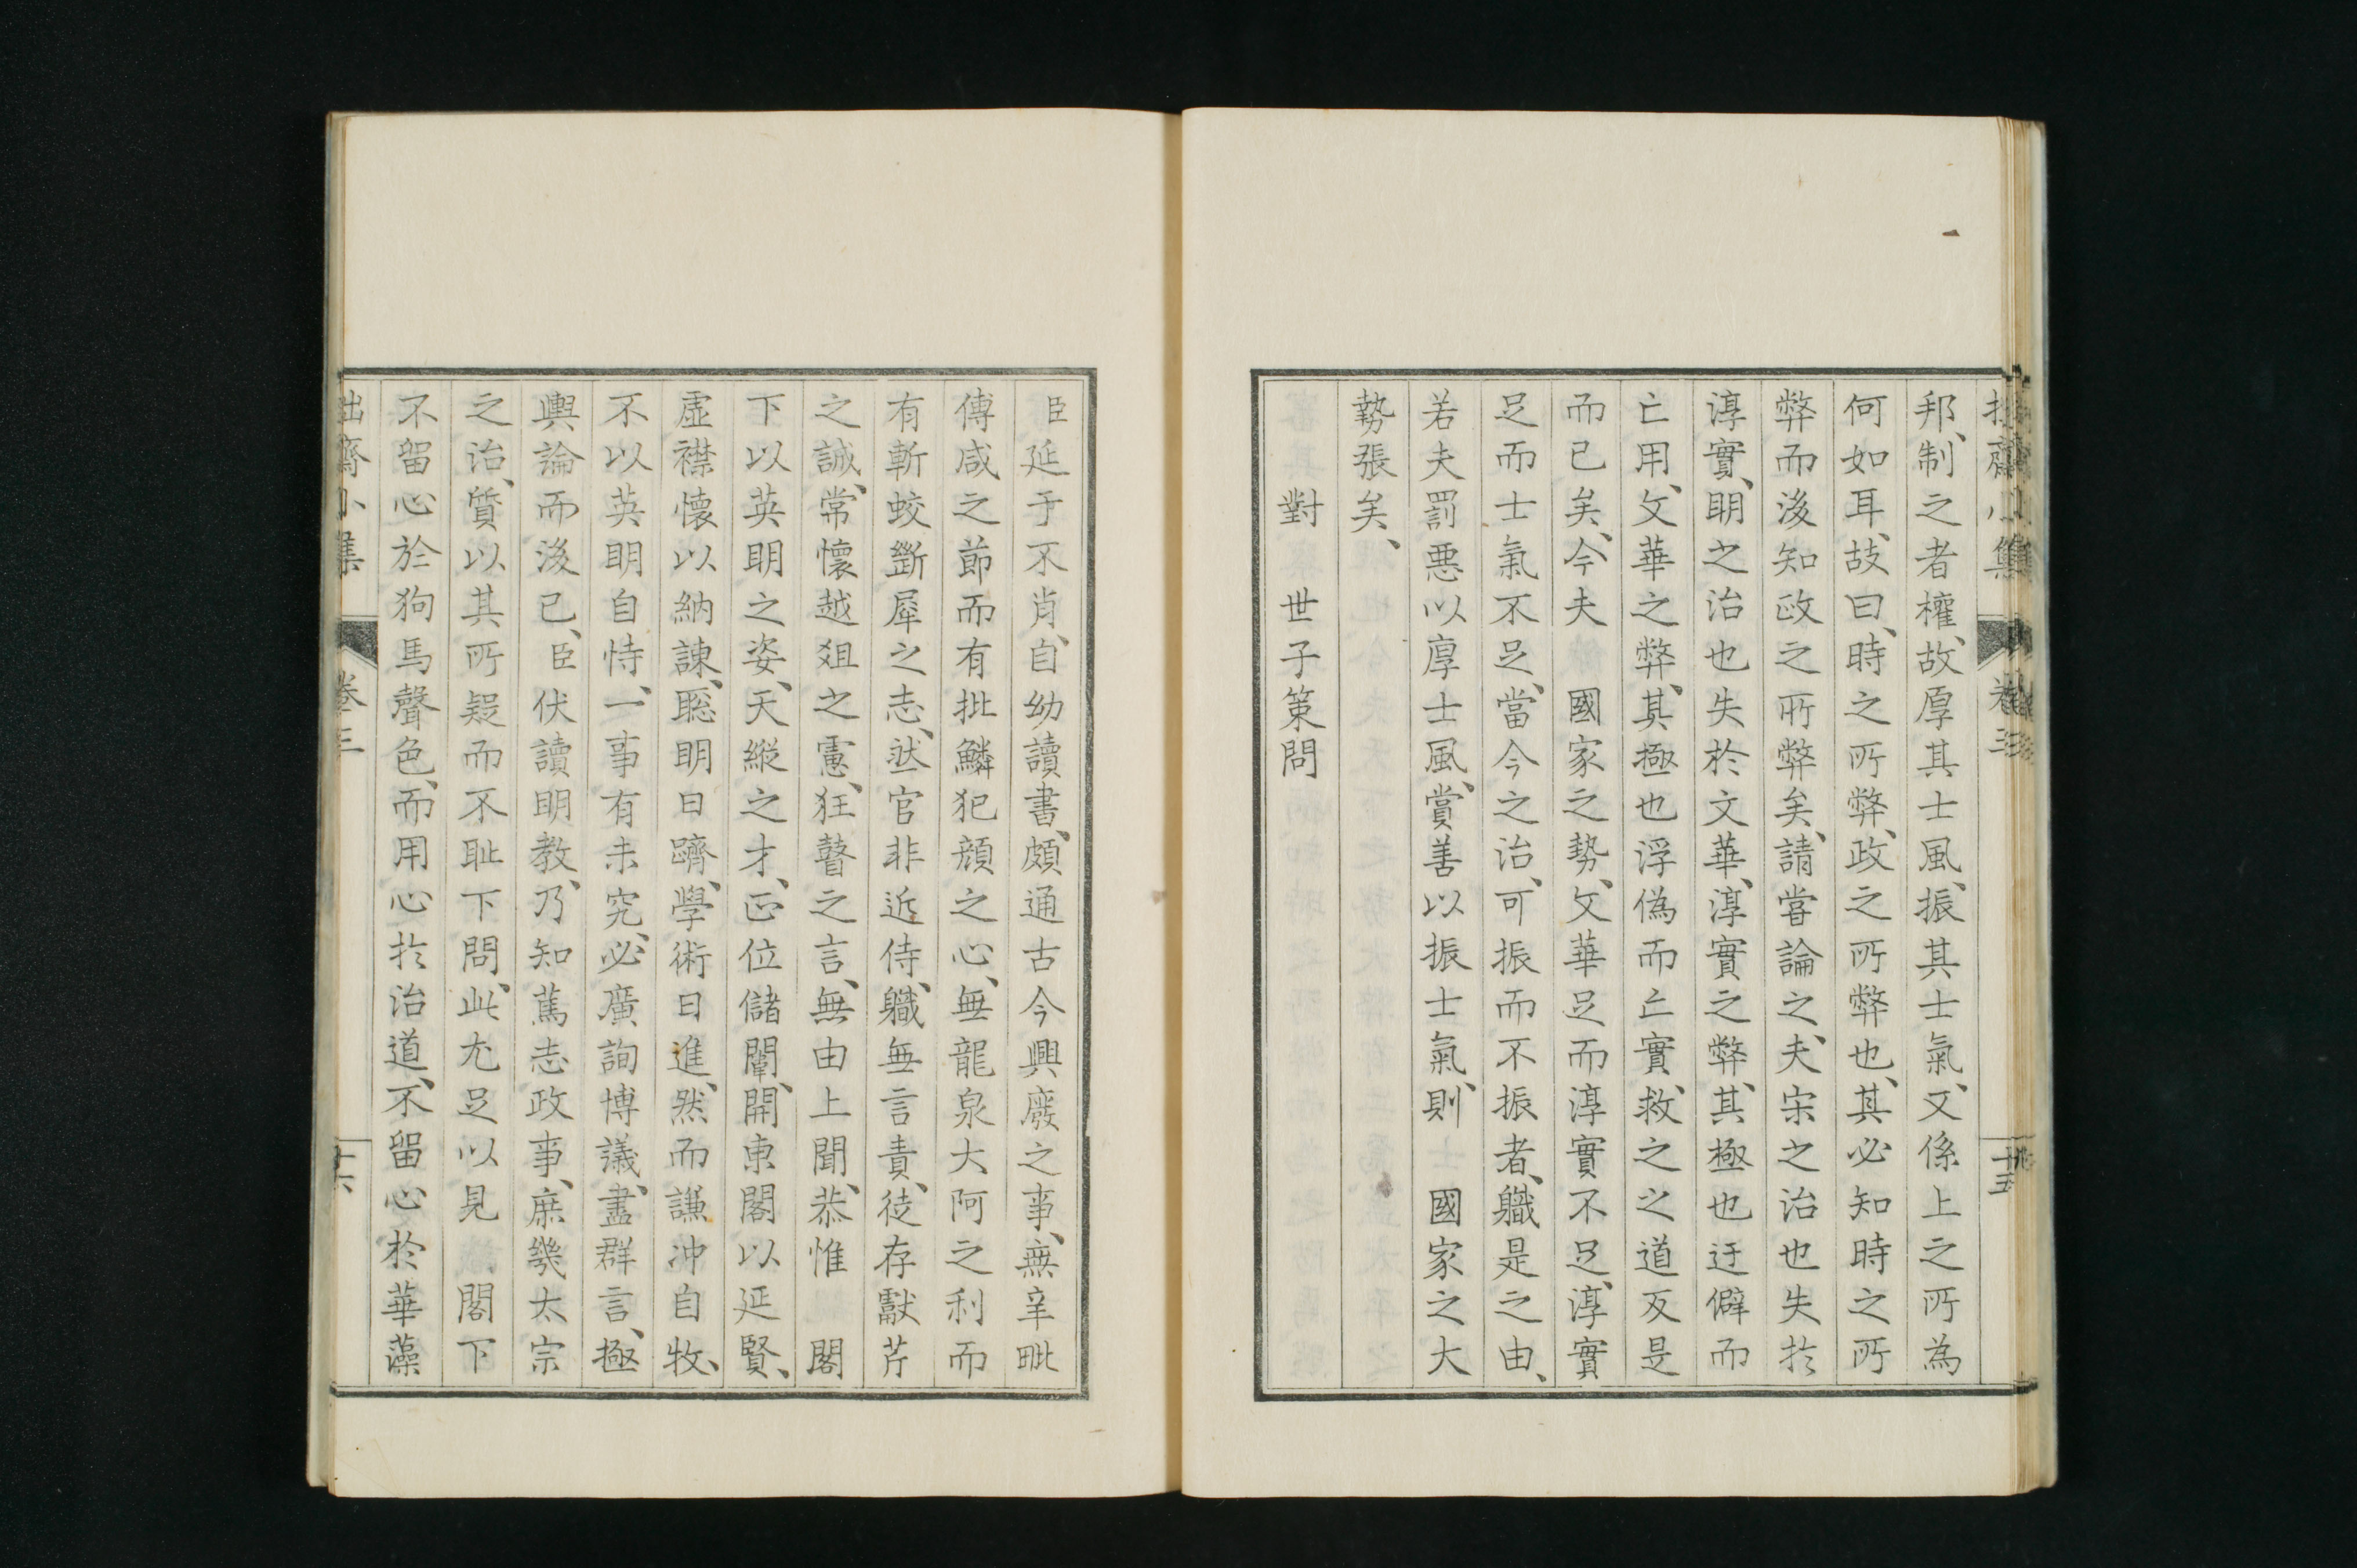 拙齋小集 卷三 十五
邦、制之者權、故厚其士風、振其士氣、又係上之所為
何如耳、故曰、時之所弊、政之所弊也、其必知時之所
弊而後知政之所弊矣、請嘗論之、夫宋之治也失於
淳實、明之治也失於文華、淳實之弊、其極也迂僻而
亡用、文華之弊、其極也浮偽而亡實、救之之道反是
而已矣、今夫 國家之勢、文華足而淳實不足、淳實
足而士氣不足、當今之治、可振而不振者、職是之由、
若夫罰惡以厚士風、賞善以振士氣、則 國家之大
勢張矣、
對 世子策問
臣延于不肖、自幼讀書、頗通古今興廢之事、無辛毗
傅咸之節而有批鱗犯顏之心、無龍泉大阿之利而
有斬蛟斷犀之志、然官非近侍、職無言責、徒存獻芹
之誠、常懷越俎之慮、狂瞽之言、無由上聞、恭惟 閣
下以英明之姿、天縱之才、正位儲闈、開東閣以延賢、
虛襟懷以納諫、聰明日躋、學術日進、然而謙冲自牧、
不以英明自恃、一事有未究、必廣詢博議、盡群言、極
輿論而後已、臣伏讀明教、乃知篤志政事、庶幾太宗
之治、質以其所疑而不耻下問、此尤足以見 閣下
不留心於狗馬聲色、而用心於治道、不留心於華藻
拙齋小集 卷三 十六